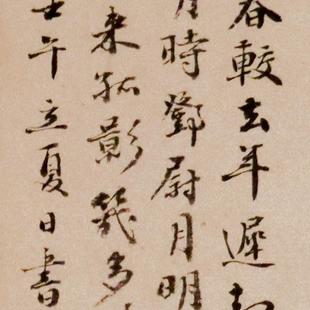 春較去年遲
月時鄧尉月明
來孤影幾多
壬午立夏日書